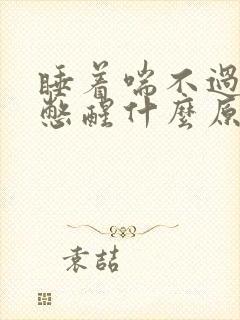 睡着喘不過
憋醒什麼原
袁喆